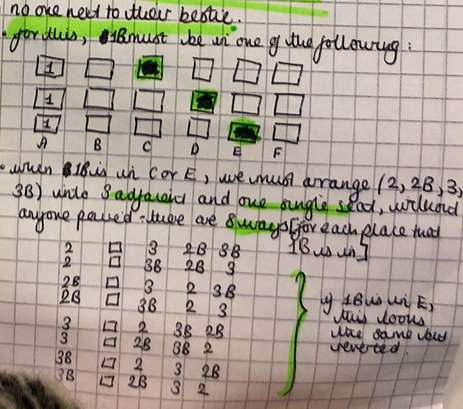 no one next to their bestie.
• for this, 1B must be in one of the following:
1
1
1
A B C D E F
• when 1B is in C or E, we must arrange (2, 2B, 3,
3B) into 3 adjacent and one single seat, without
anyone paired - there are 8 ways [for each place that
1B is in]
2 □ 3 2B 3B
2 □ 3B 2B 3
2B □ 3 2 3B
2B □ 3B 2 3
3 □ 2 3B 2B
3 □ 2B 3B 2
3B □ 2 3 2B
3B □ 2B 3 2
if 1B is in E,
this looks
the same but
reverted.